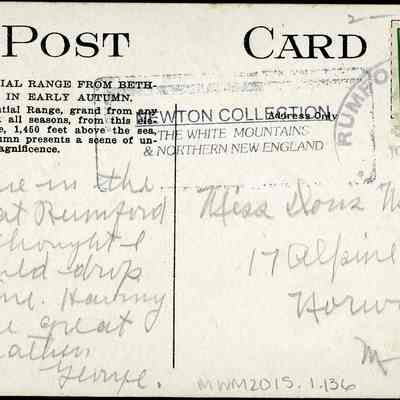 POST CARD
IAL RANGE FROM BETH-
IN EARLY AUTUMN.
ntial Range, grand from any
all seasons, from this ele-
e, 1,450 feet above the sea,
umn presents a scene of un-
agnificence.
Address Only
NEWTON COLLECTION
THE WHITE MOUNTAINS
& NORTHERN NEW ENGLAND
RUMFO
2
in the
at Rumford
thought I
uld drop
me. Having
great
eather
George.
Miss Doris
17 Alpine
Norw
M
MWM2015.1.136